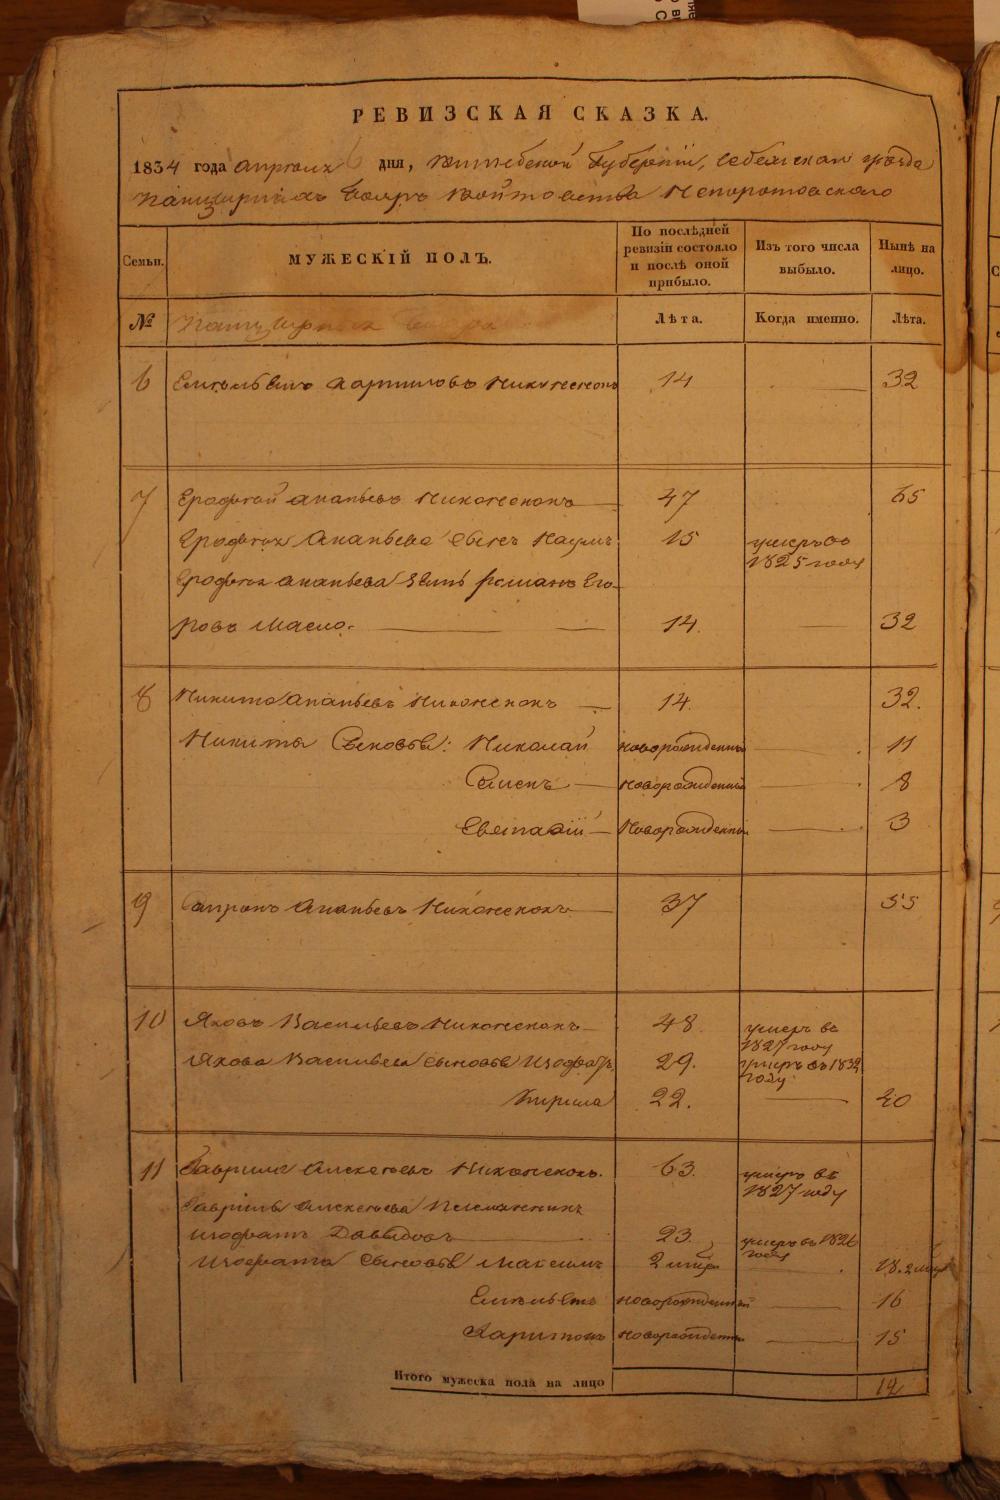 РЕВИЗСКАЯ СКАЗКА.
1834 года апреля 6 дня, Витебской Губерніи, Себежскаго уѣзда
панцирныхъ бояръ войтовства Непоротовскаго
Семьи.
МУЖЕСКІЙ ПОЛЪ.
По послѣдней ревизіи состояло и послѣ оной прибыло.
Изъ того числа выбыло.
Нынѣ на лицо.
№ Панцырныя бояра
Лѣта.
Когда именно.
Лѣта.
6 Емельянъ Никоненокъ 14 32
7 Ерофѣй Ананьевъ Никоненокъ 47 65
Ерофѣя Ананьева сынъ Наумъ 15 умеръ въ 1825 году
Ерофѣя Ананьева зять Романъ Его-
ровъ Масло. 14. 32
8 Никита Ананьевъ Никоненокъ 14. 32.
Никиты Сыновья: Николай новорожденный 11
Семенъ новорожденный 8
Евстафій Новорожденный 3
9 Ананьевъ Никоненокъ 37 55
10 Яковъ Васильевъ Никоненокъ 48. умеръ въ 1827 году
Якова Васильева сыновья 29. умеръ въ 1832 году
Кирила 22. 40
11 Гаврила Алексѣевъ Никоненокъ. 63. умеръ въ 1827 году
Гаврилы Алексѣева Племянникъ
Давыдовъ 23 умеръ въ 1826 году
сыновья Максимъ 2 18.
Емельянъ новорожденный 16
Харитонъ новорожденный 15
Итого мужеска пола на лицо 12